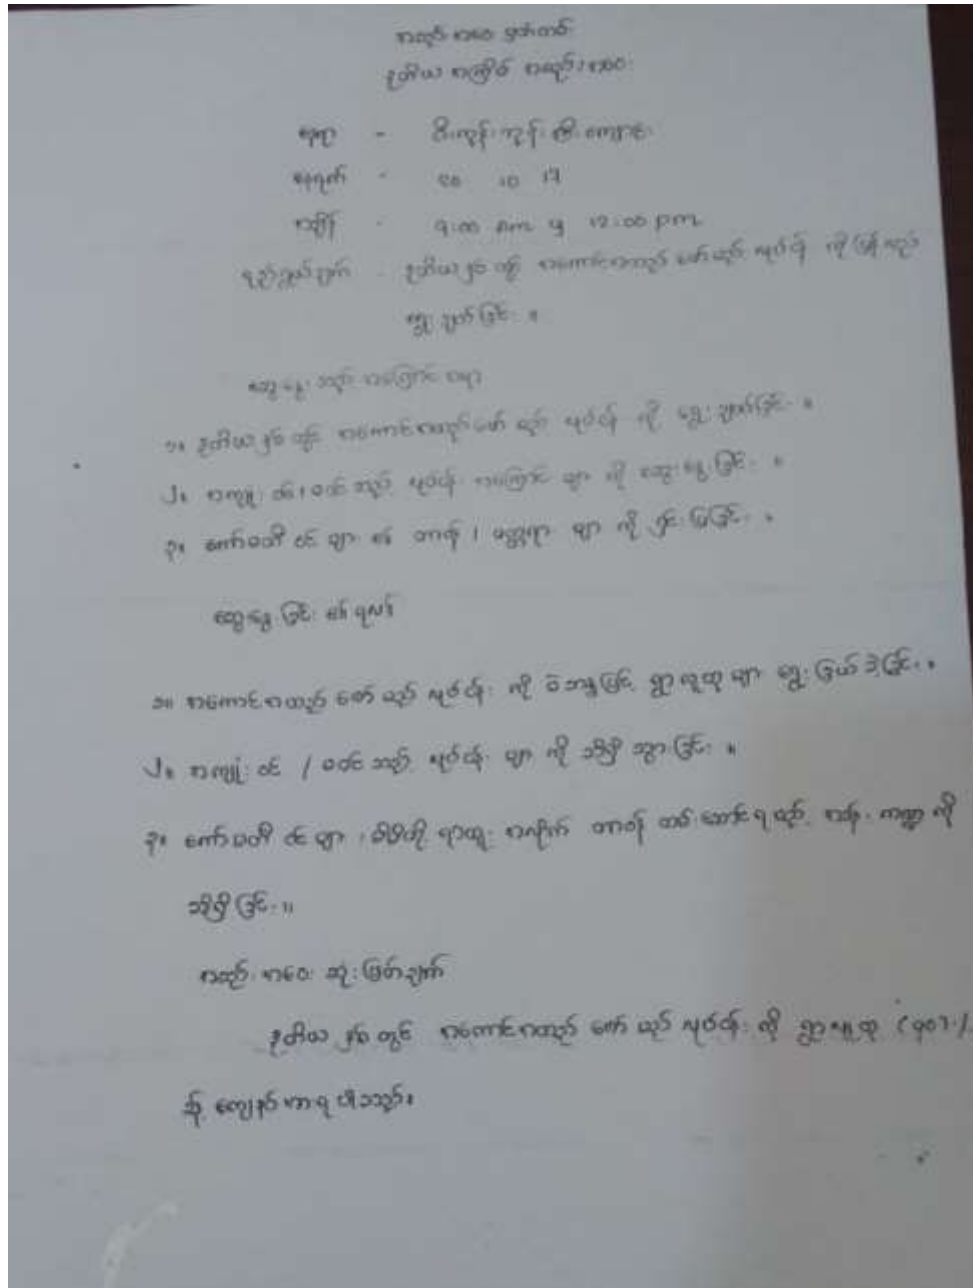 အစည်းအဝေး မှတ်တမ်း
ဒုတိယ အကြိမ် အစည်းအဝေး
နေရာ - ဘုန်းကြီးကျောင်း
နေ့ရက် - 10 17
အချိန် - 9:00 am မှ 12:00 pm
ရည်ရွယ်ချက် - ဒုတိယနှစ်တွင် အကောင်အထည်ဖော်မည့် လုပ်ငန်း ကို
ရွေးချယ်ခြင်း ။
ဆွေးနွေးသည့် အကြောင်းအရာ
၁။ ဒုတိယနှစ်တွင် အကောင်အထည်ဖော်မည့် လုပ်ငန်း ကို ရွေးချယ်ခြင်း ။
၂။ အကျုံးဝင် / မဝင်သည့် လုပ်ငန်း အကြောင်းများ ကို ဆွေးနွေးခြင်း ။
၃။ ကော်မတီဝင်များ ၏ တာဝန် / ဝတ္တရားများ ကို ရှင်းပြခြင်း ။
ဆွေးနွေးခြင်း ၏ ရလဒ်
၁။ အကောင်အထည်ဖော်မည့် လုပ်ငန်း ကို မဲပေးခြင်းဖြင့် ရွာလူထုများ ရွေးချယ်ခဲ့ခြင်း ။
၂။ အကျုံးဝင် / မဝင်သည့် လုပ်ငန်းများ ကို သိရှိသွားခြင်း ။
၃။ ကော်မတီဝင်များ မိမိတို့ ရာထူးအလိုက် တာဝန် ထမ်းဆောင်ရမည့် အခန်းကဏ္ဍ ကို
သိရှိခြင်း ။
အစည်းအဝေး ဆုံးဖြတ်ချက်
ဒုတိယနှစ်တွင် အကောင်အထည်ဖော်မည့် လုပ်ငန်း ကို ရွာလူထု
ကျေနပ်အားရပါသည်။